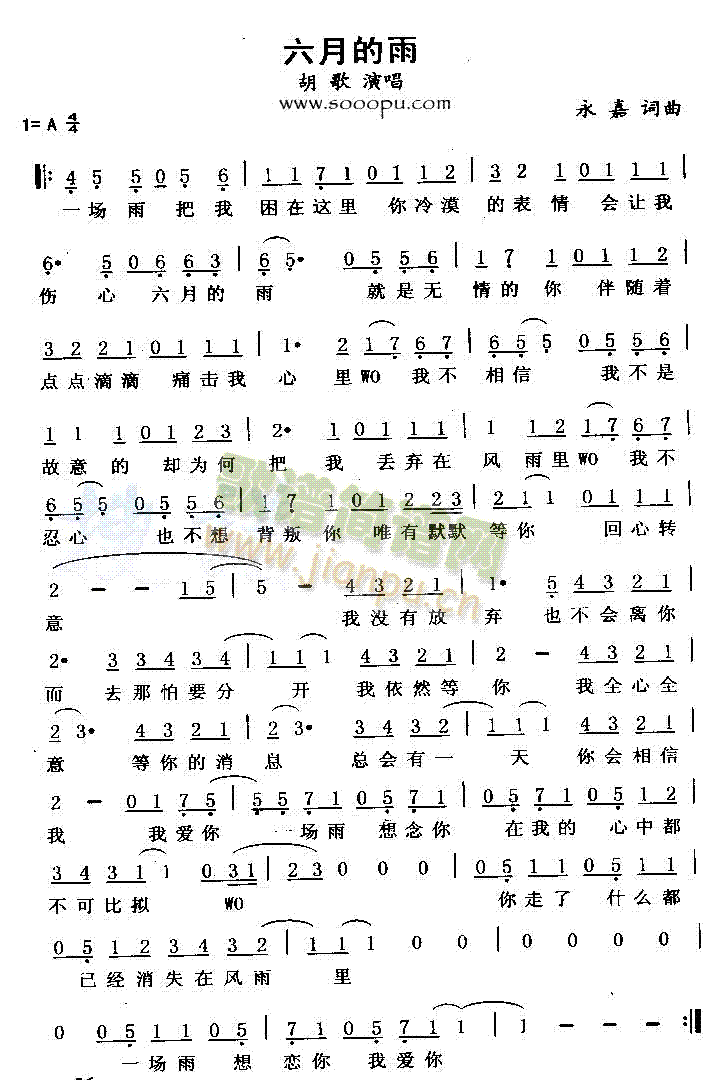 六月的雨
胡 歌 演唱
www.sooopu.com
1= A 4/4 永 嘉 词曲
4 5 5 0 5 6 | 1 1 7 1 0 1 1 2 | 3 2 1 0 1 1 1 |
一场 雨 把 我 困在这里 你冷漠 的表 情 会让我
6· 5 0 6 6 3 | 6 5· 0 5 5 6 | 1 7 1 0 1 1 2 |
伤 心 六月的 雨 就是无 情的 你 伴随着
3 2 2 1 0 1 1 1 | 1· 2 1 7 6 7 | 6 5 5 0 5 5 6 |
点点滴滴 痛击我 心 里WO 我不 相信 我不是
1 1 1 0 1 2 3 | 2· 1 0 1 1 1 | 1 1 2 1 7 6 7 |
故意 的 却为何 把 我 丢弃在 风 雨里WO 我不
6 5 5 0 5 5 6 | 1 7 1 0 1 2 2 3 | 2 1 2 1 0 1 1 1 |
忍心 也不想 背叛 你 唯有默默 等你 回心转
2 – – 1 5 | 5 – 4 3 2 1 | 1· 5 4 3 2 1 |
意 我没有放 弃 也不会离你
2· 3 3 4 3 4 | 3 1 1 4 3 2 1 | 2 – 4 3 2 1 |
而 去那怕要分 开 我依然等 你 我全心全
2 3· 4 3 2 1 | 3· 3 4 3 2 | 1 1 1 4 3 2 1 |
意 等你的消 息 总会有一 天 你会相信
2 – 0 1 7 5 | 5 5 7 1 0 5 7 1 | 0 5 7 1 0 5 1 2 |
我 我爱你 一场雨 想念你 在我的 心中都
3 4 3 1 1 0 0 3 1 | 2 3 0 0 0 | 0 5 1 1 0 5 1 1 |
不可比拟 WO 你走了 什么都
0 5 1 2 3 4 3 2 | 1 1 1 0 0 | 0 0 0 0 |
已经消失在风雨 里
0 0 5 1 1 0 5 | 1 0 5 7 1 0 5 7 1 | 1 – – – :||
一场雨 想 恋你 我爱你
歌谱简谱网
www.jianpu.cn